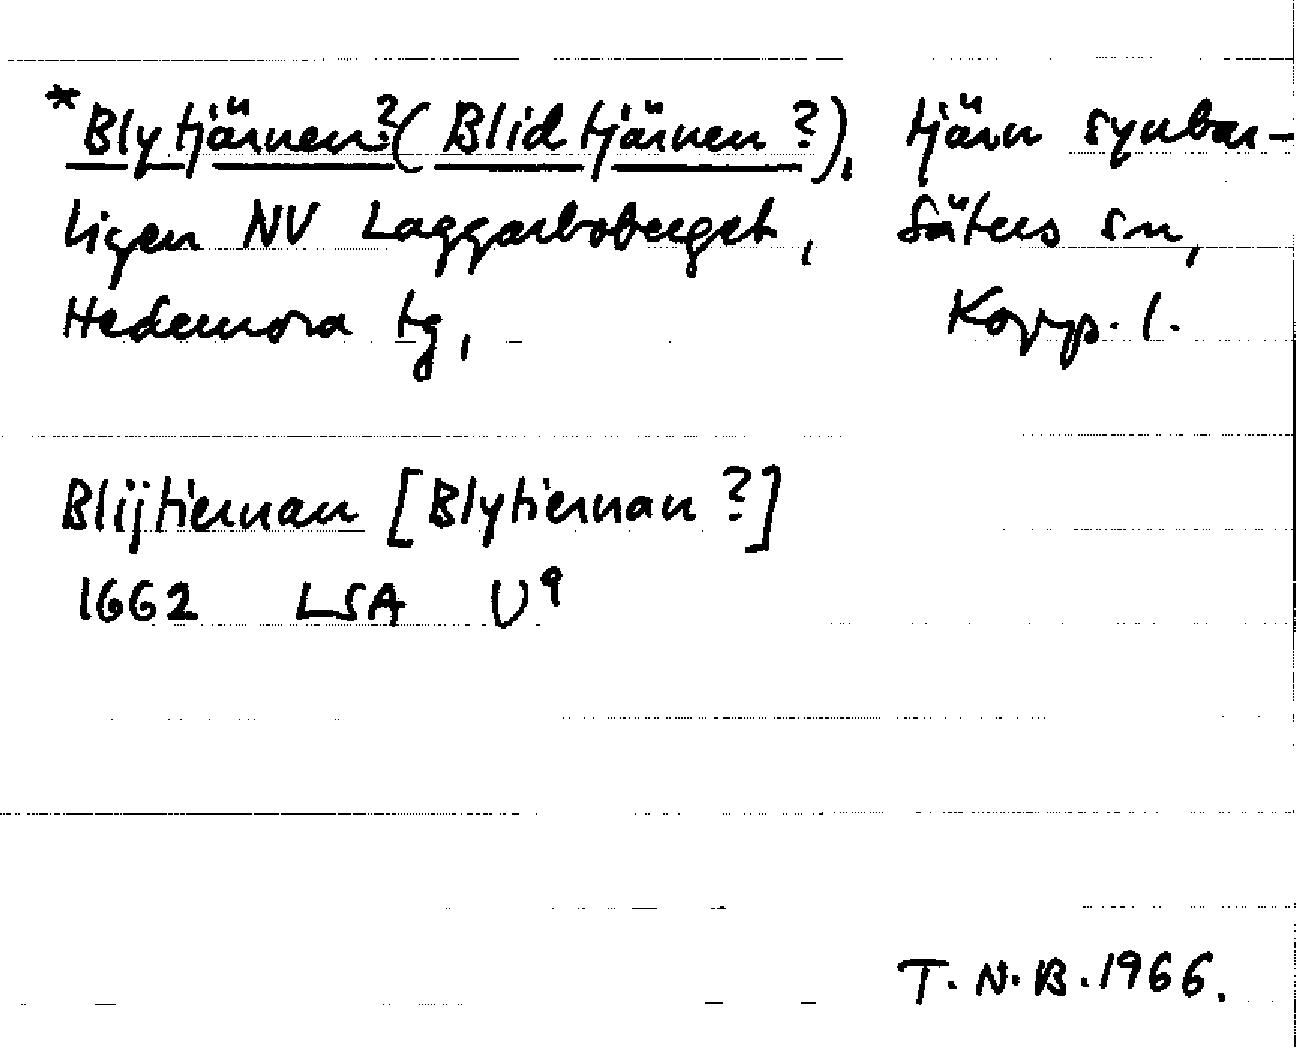 *Blytjärnen? (Blidtjärnen?), tjärn synbar-
ligen NV Laggarboberget, Säters sn,
Hedemora tg, Kopp. l.
Blijtiernan [Blytiernan ?]
1662 LSA U9
T. N. B. 1966.